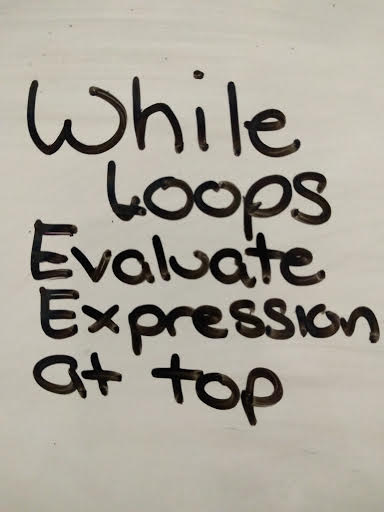 While
Loops
Evaluate
Expression
at top